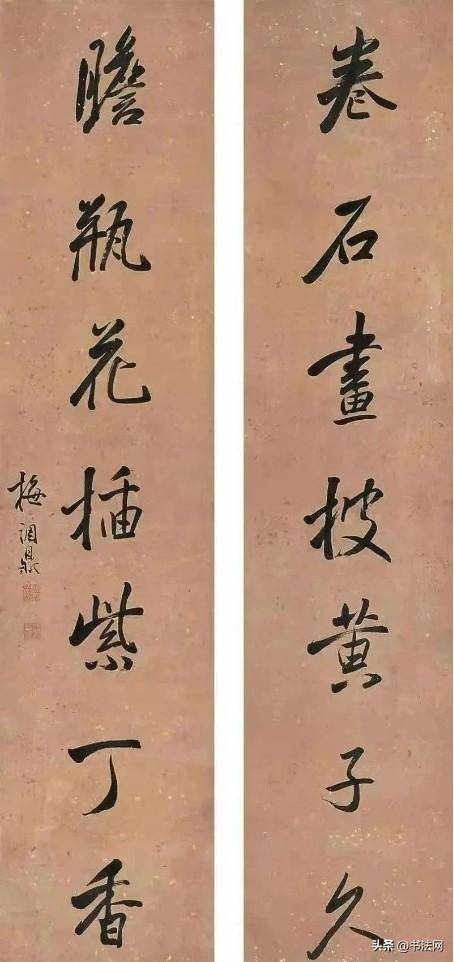 卷石畫披黃子久
膽瓶花插紫丁香
梅調鼎
头条 @书法网